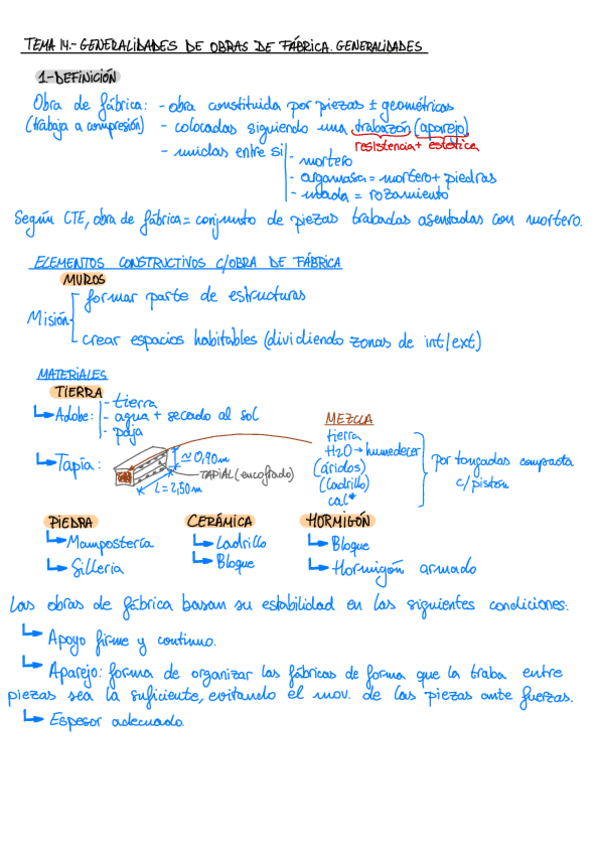 TEMA 14.- GENERALIDADES DE OBRAS DE FÁBRICA. GENERALIDADES
1-DEFINICIÓN
Obra de fábrica: - obra constituida por piezas ± geométricas
(trabaja a compresión) - colocadas siguiendo una trabazón (aparejo)
resistencia + estética
- unidas entre si - mortero
- argamasa = mortero + piedras
- = rozamiento
Según CTE, obra de fábrica = conjunto de piezas trabadas asentadas con mortero.
ELEMENTOS CONSTRUCTIVOS C/OBRA DE FÁBRICA
MUROS
Misión formar parte de estructuras
crear espacios habitables (dividiendo zonas de int/ext)
MATERIALES
TIERRA
Adobe: - tierra
- agua + secado al sol
- paja
Tapia: ≃ 0,90m
TAPIAL (encofrado)
L = 2,50m
MEZCLA
tierra
H2O → humedecer
(áridos)
(ladrillo)
cal*
por tongadas compacta
c/pistón
PIEDRA
Mampostería
Sillería
CERÁMICA
Ladrillo
Bloque
HORMIGÓN
Bloque
Hormigón armado
Las obras de fábrica basan su estabilidad en las siguientes condiciones:
Apoyo firme y continuo.
Aparejo: forma de organizar las fábricas de forma que la traba entre
piezas sea la suficiente, evitando el mov. de las piezas ante fuerzas.
Espesor adecuado.